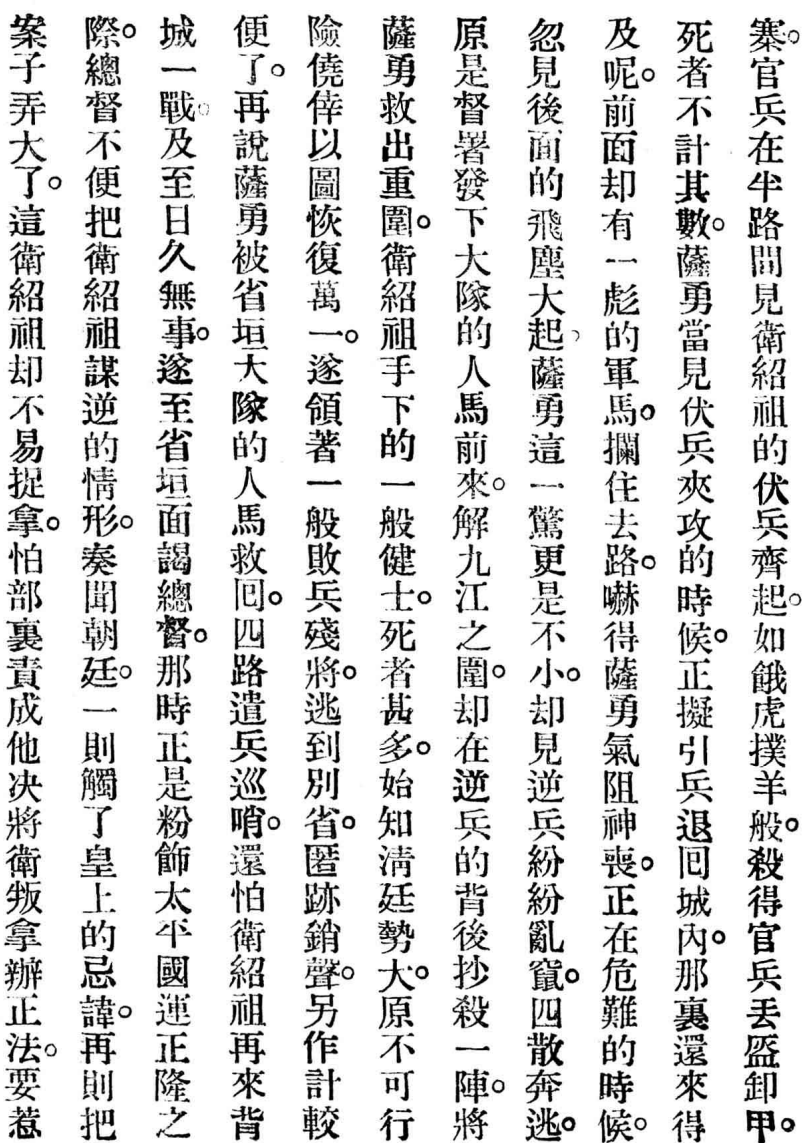 寨。官兵在半路間見衛紹祖的伏兵齊起。如餓虎撲羊般。殺得官兵丟盔卸甲。
死者不計其數。薩勇當見伏兵夾攻的時候。正擬引兵退回城內。那裏還來得
及呢。前面却有一彪的軍馬。攔住去路。嚇得薩勇氣阻神喪。正在危難的時候。
忽見後面的飛塵大起、薩勇這一驚更是不小。却見逆兵紛紛亂竄。四散奔逃。
原是督署發下大隊的人馬前來。解九江之圍。却在逆兵的背後抄殺一陣。將
薩勇救出重圍。衛紹祖手下的一般健士。死者甚多。始知淸廷勢大。原不可行
險僥倖以圖恢復萬一。遂領著一般敗兵殘將。逃到別省。匿跡銷聲。另作計較
便了。再說薩勇被省垣大隊的人馬救回。四路遣兵巡哨。還怕衛紹祖再來背
城一戰。及至日久無事。遂至省垣面謁總督。那時正是粉飾太平國運正隆之
際。總督不便把衛紹祖謀逆的情形。奏聞朝廷。一則觸了皇上的忌諱。再則把
案子弄大了。這衛紹祖却不易捉拿。怕部裏責成他决將衛叛拿辦正法。要惹